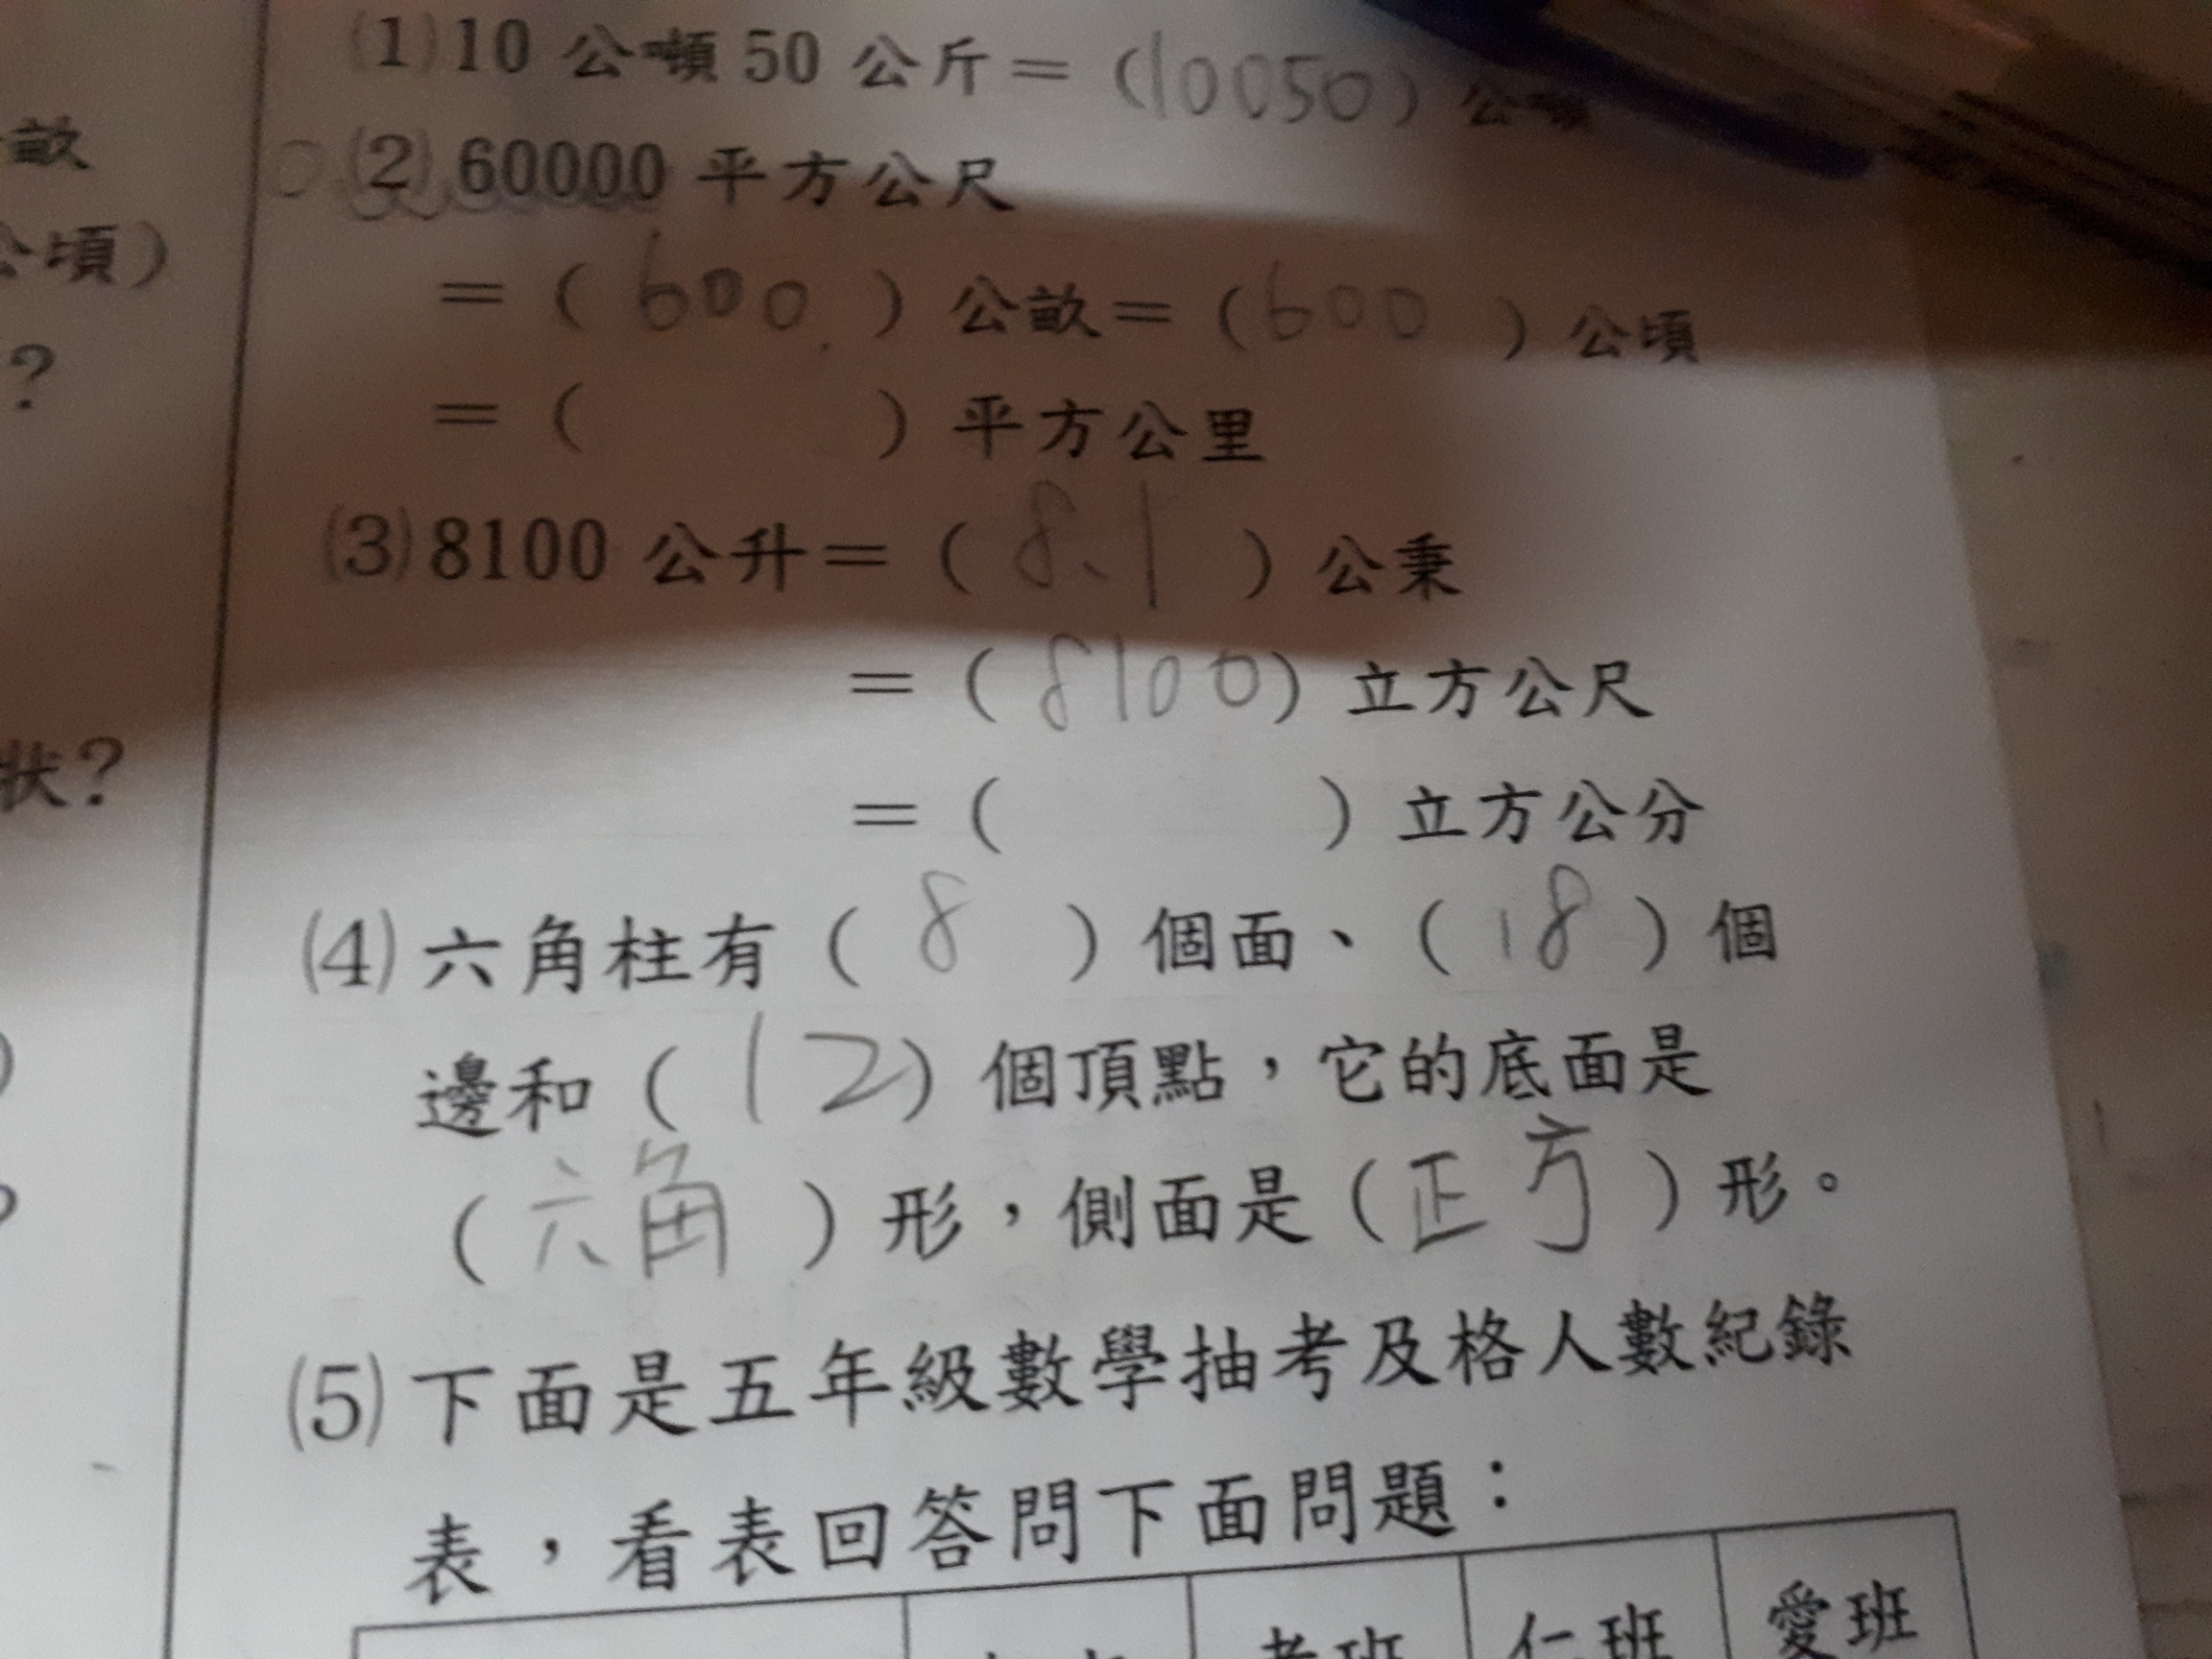 (1)10 公噸 50 公斤=(10050)公噸
畝
(2)60000 平方公尺
公頃)
=(600)公畝=(600)公頃
?
=( )平方公里
(3)8100 公升=(8.1)公秉
=(8100)立方公尺
狀?
=( )立方公分
(4)六角柱有(8)個面、(18)個
邊和(12)個頂點,它的底面是
(六角)形,側面是(正方)形。
(5)下面是五年級數學抽考及格人數紀錄
表,看表回答問下面問題:
孝班 仁班 愛班